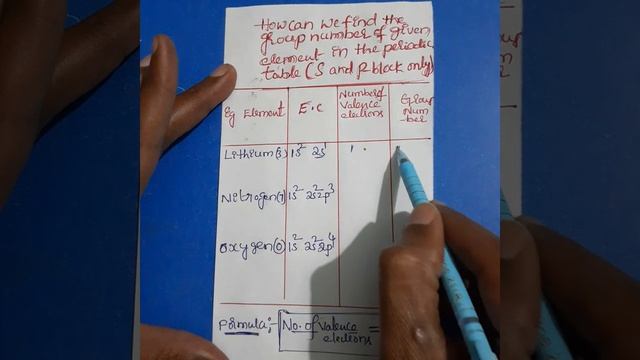 How can we find the
group number of given
element in the periodic
table (s and p block only)
Eg Element E.C Number of valence electrons Group Num-ber
Lithium(3) 1s² 2s¹ 1
Nitrogen(7) 1s² 2s² 2p³
Oxygen(8) 1s² 2s² 2p⁴
Formula:- No. of Valence electrons =